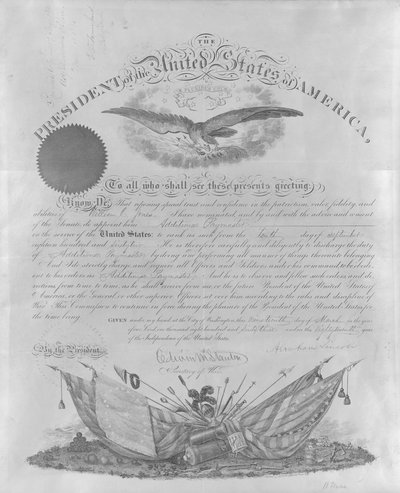 THE
PRESIDENT of the United States of AMERICA,
To all who shall see these presents greeting:
Know Ye, That reposing special trust and confidence in the patriotism, valor, fidelity, and
abilities of I have nominated, and by and with the advice and consent
of the Senate, do appoint him Additional Paymaster
in the service of the United States: to rank as such from the tenth day of September
eighteen hundred and sixty two He is therefore carefully and diligently to discharge the duty
of Additional Paymaster by doing and performing all manner of things thereunto belonging.
And I do strictly charge and require all Officers and Soldiers under his command to be obedi-
ent to his orders as Additional Paymaster And he is to observe and follow such orders, and di-
rections, from time to time, as he shall receive from me, or the future President of the United States of
America, or the General or other superior Officers set over him, according to the rules and discipline of
War. This Commission to continue in force during the pleasure of the President of the United States, for
the time being.
GIVEN under my hand at the City of Washington, this day of March in the year
of our Lord one thousand eight hundred and sixty three and in the eighty seventh year
of the Independence of the United States.
By the President,
Abraham Lincoln
Edwin M Stanton
Secretary of War.